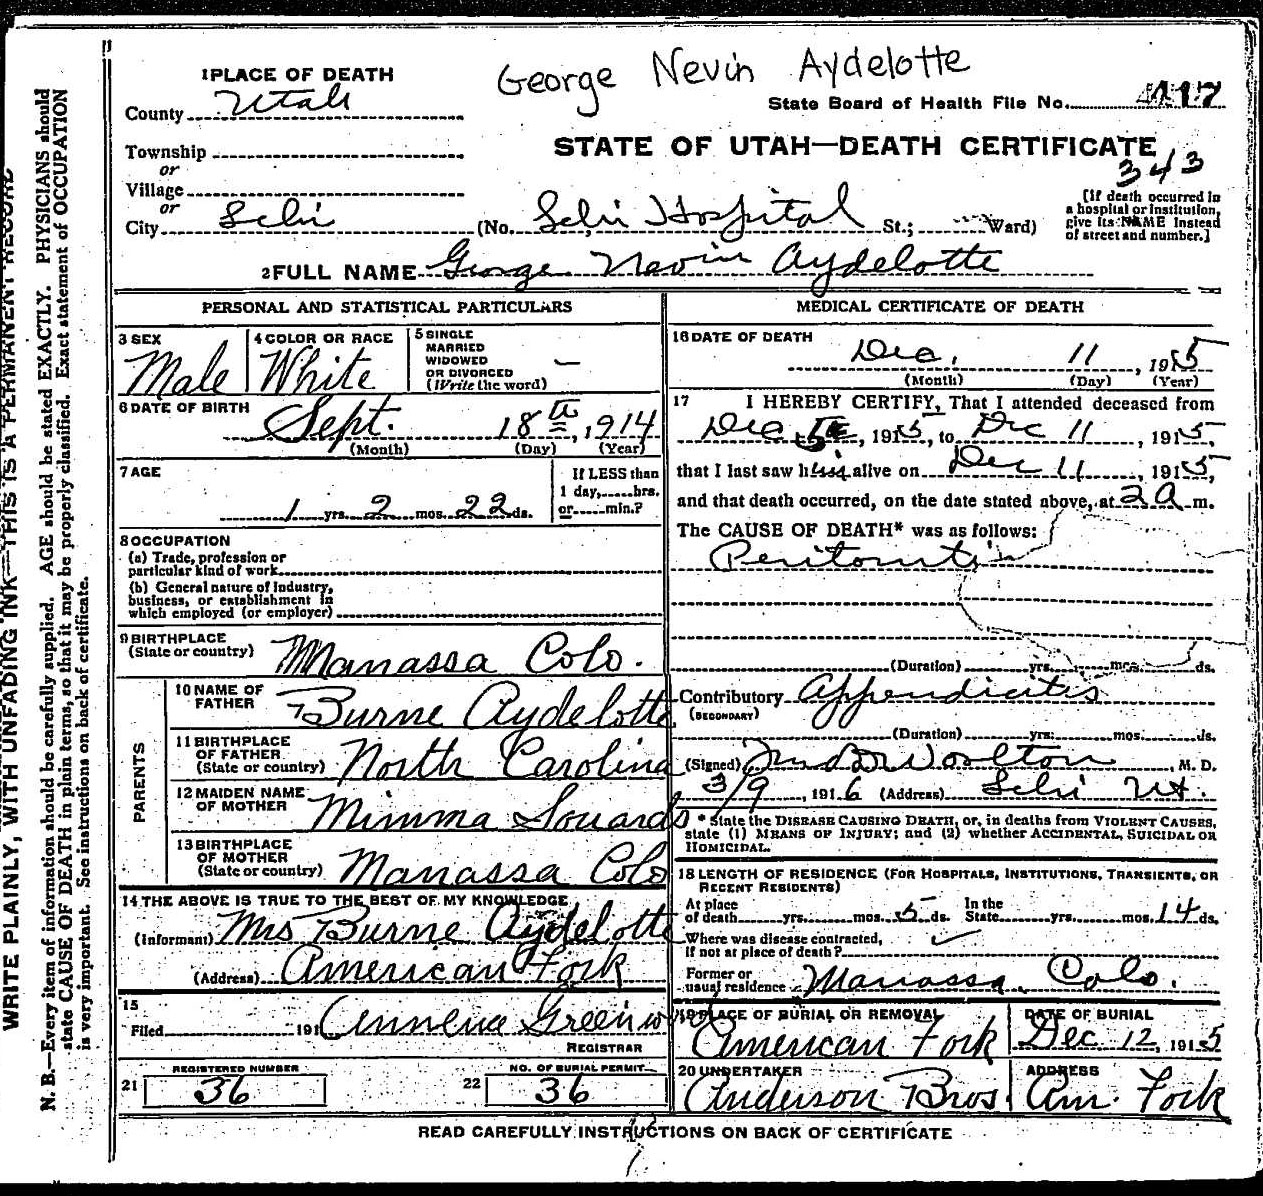 George Nevin Aydelotte
1 PLACE OF DEATH
County Utah
State Board of Health File No.
Township
or
Village
or
City Lehi
STATE OF UTAH—DEATH CERTIFICATE
343
(No. Lehi Hospital St.; Ward)
[If death occurred in
a hospital or institution,
give its NAME instead
of street and number.]
2 FULL NAME George Nevin Aydelotte
PERSONAL AND STATISTICAL PARTICULARS
3 SEX
Male
4 COLOR OR RACE
White
5 SINGLE
MARRIED
WIDOWED
OR DIVORCED
(Write the word)
—
6 DATE OF BIRTH
Sept. 18th, 1914
(Month) (Day) (Year)
7 AGE
1 yrs. 2 mos. 22 ds.
If LESS than
1 day,......hrs.
or......min.?
8 OCCUPATION
(a) Trade, profession or
particular kind of work
(b) General nature of industry,
business, or establishment in
which employed (or employer)
9 BIRTHPLACE
(State or country)
Manassa Colo.
PARENTS
10 NAME OF
FATHER
Burne Aydelotte
11 BIRTHPLACE
OF FATHER
(State or country)
North Carolina
12 MAIDEN NAME
OF MOTHER
Mimma Souards
13 BIRTHPLACE
OF MOTHER
(State or country)
Manassa Colo
14 THE ABOVE IS TRUE TO THE BEST OF MY KNOWLEDGE
(Informant) Mrs Burne Aydelotte
(Address) American Fork
15
Filed 191
Greenw
REGISTRAR
21 REGISTERED NUMBER
36
22 NO. OF BURIAL PERMIT
36
MEDICAL CERTIFICATE OF DEATH
16 DATE OF DEATH
Dec. 11, 1915
(Month) (Day) (Year)
17 I HEREBY CERTIFY, That I attended deceased from
Dec 1915, to Dec 11, 1915,
that I last saw him alive on Dec 11, 1915,
and that death occurred, on the date stated above, at 2 a m.
The CAUSE OF DEATH* was as follows:
Peritonitis
(Duration) yrs. mos. ds.
Contributory Appendicitis
(SECONDARY)
(Duration) yrs. mos. ds.
(Signed) Woolton, M. D.
3/9, 1916 (Address) Lehi Ut.
* State the DISEASE CAUSING DEATH, or, in deaths from VIOLENT CAUSES,
state (1) MEANS OF INJURY; and (2) whether ACCIDENTAL, SUICIDAL OR
HOMICIDAL.
18 LENGTH OF RESIDENCE (FOR HOSPITALS, INSTITUTIONS, TRANSIENTS, OR
RECENT RESIDENTS)
At place
of death yrs. mos. 5 ds.
In the
State yrs. mos. 14 ds.
Where was disease contracted,
If not at place of death?
Former or
usual residence Manassa, Colo.
19 PLACE OF BURIAL OR REMOVAL
American Fork
DATE OF BURIAL
Dec 12, 1915
20 UNDERTAKER
Anderson Bros.
ADDRESS
Am. Fork
READ CAREFULLY INSTRUCTIONS ON BACK OF CERTIFICATE
WRITE PLAINLY, WITH UNFADING INK—THIS IS A PERMANENT RECORD
N. B.—Every item of information should be carefully supplied. AGE should be stated EXACTLY. PHYSICIANS should
state CAUSE OF DEATH in plain terms, so that it may be properly classified. Exact statement of OCCUPATION
is very important. See instructions on back of certificate.